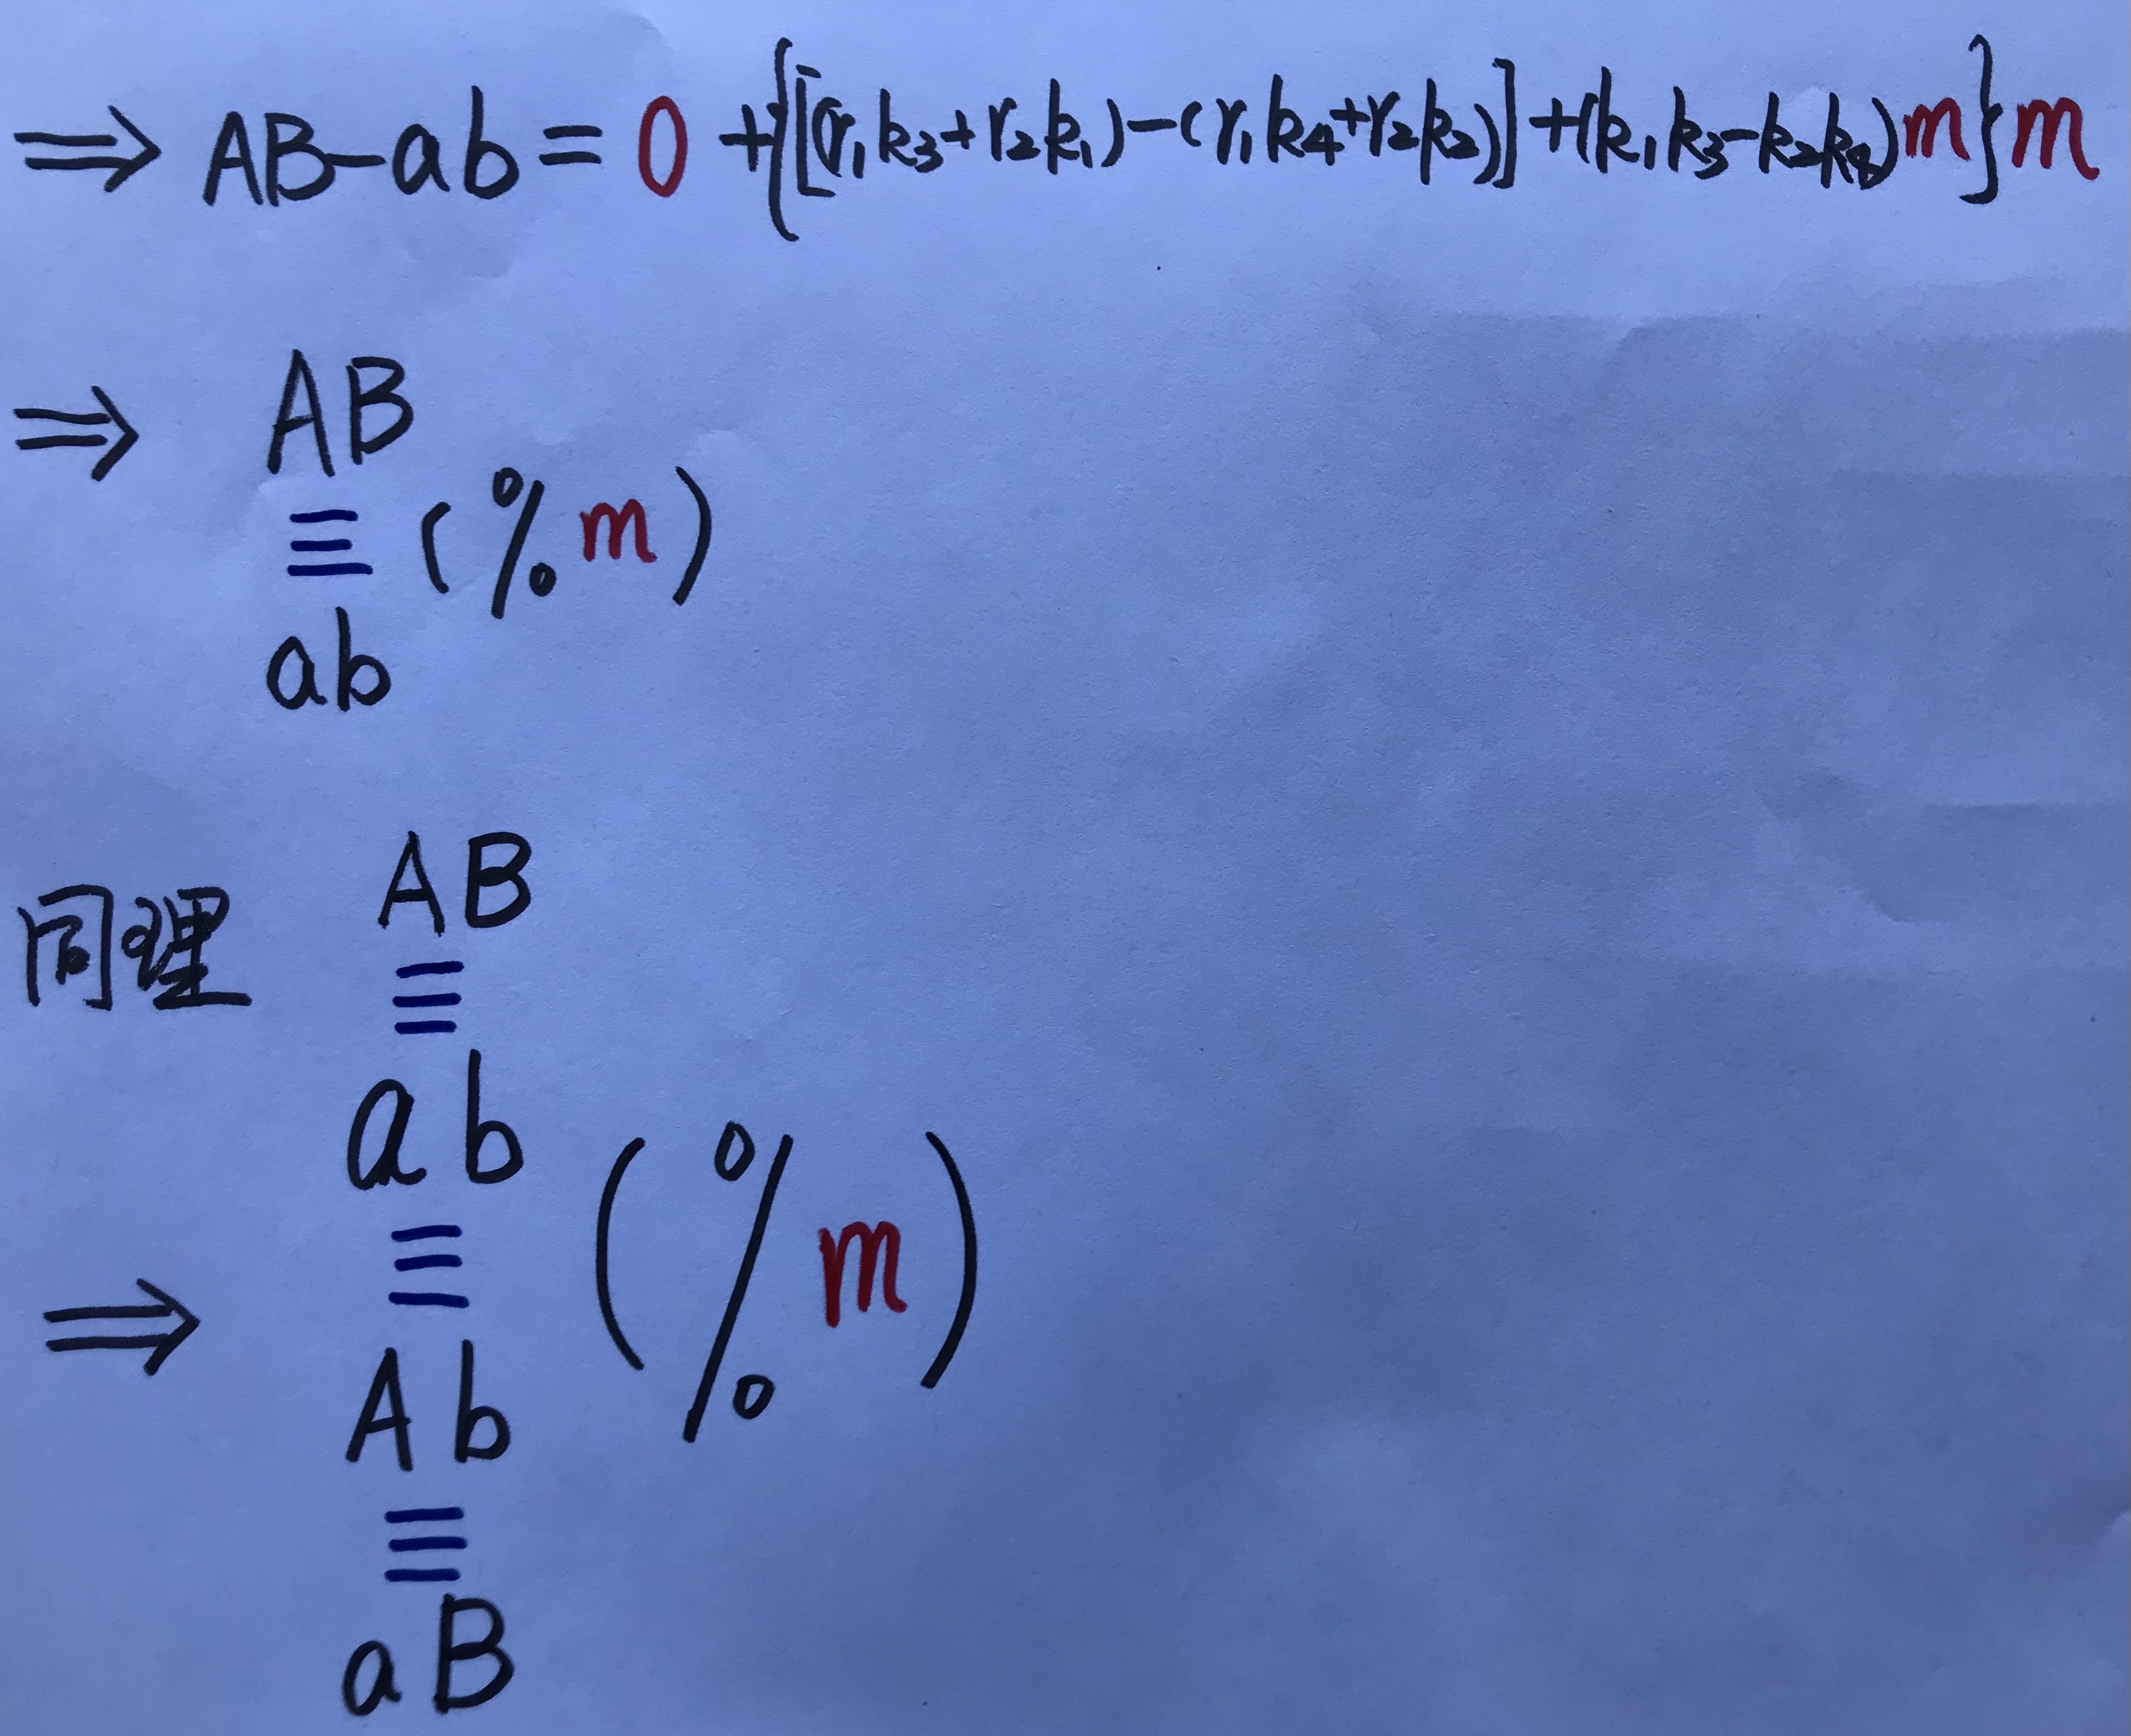 ⇒ AB-ab = 0 +{[(r₁k₃+r₂k₁)-(r₁k₄+r₂k₂)]+(k₁k₃-k₂k₄)m}m
⇒ AB
≡ (%m)
ab
同理 AB
≡
ab
≡ (%m)
⇒ Ab
≡
aB